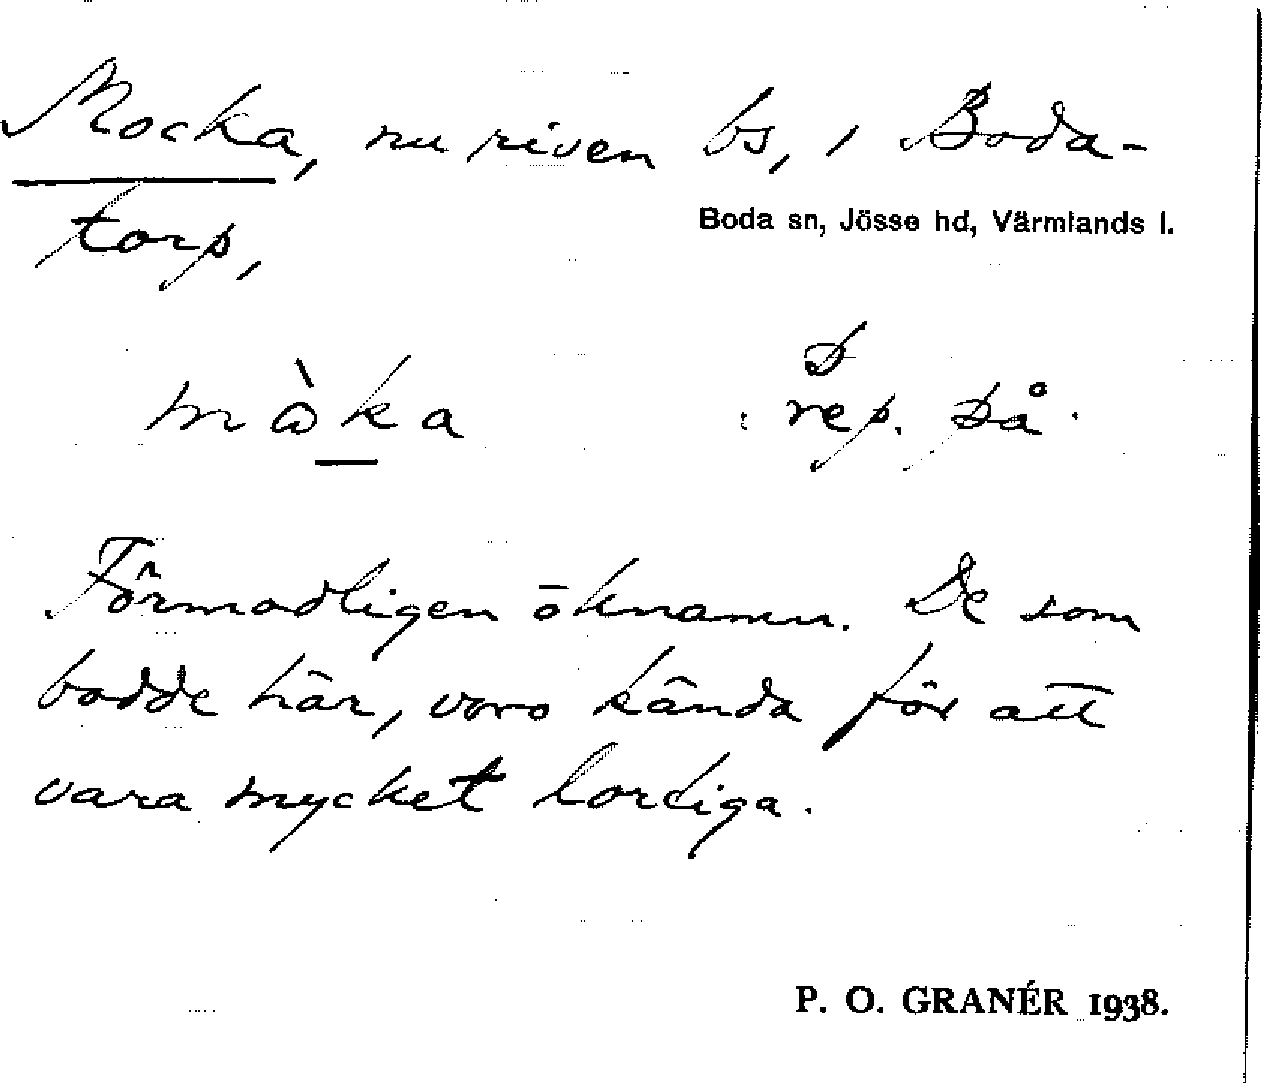 Mocka, nu riven bs, i Boda-
Boda sn, Jösse hd, Värmlands l.
torp,
måka rep. på
Förmodligen öknamn. De som
bodde här, voro kända för att
vara mycket lortiga.
P. O. GRANÉR 1938.